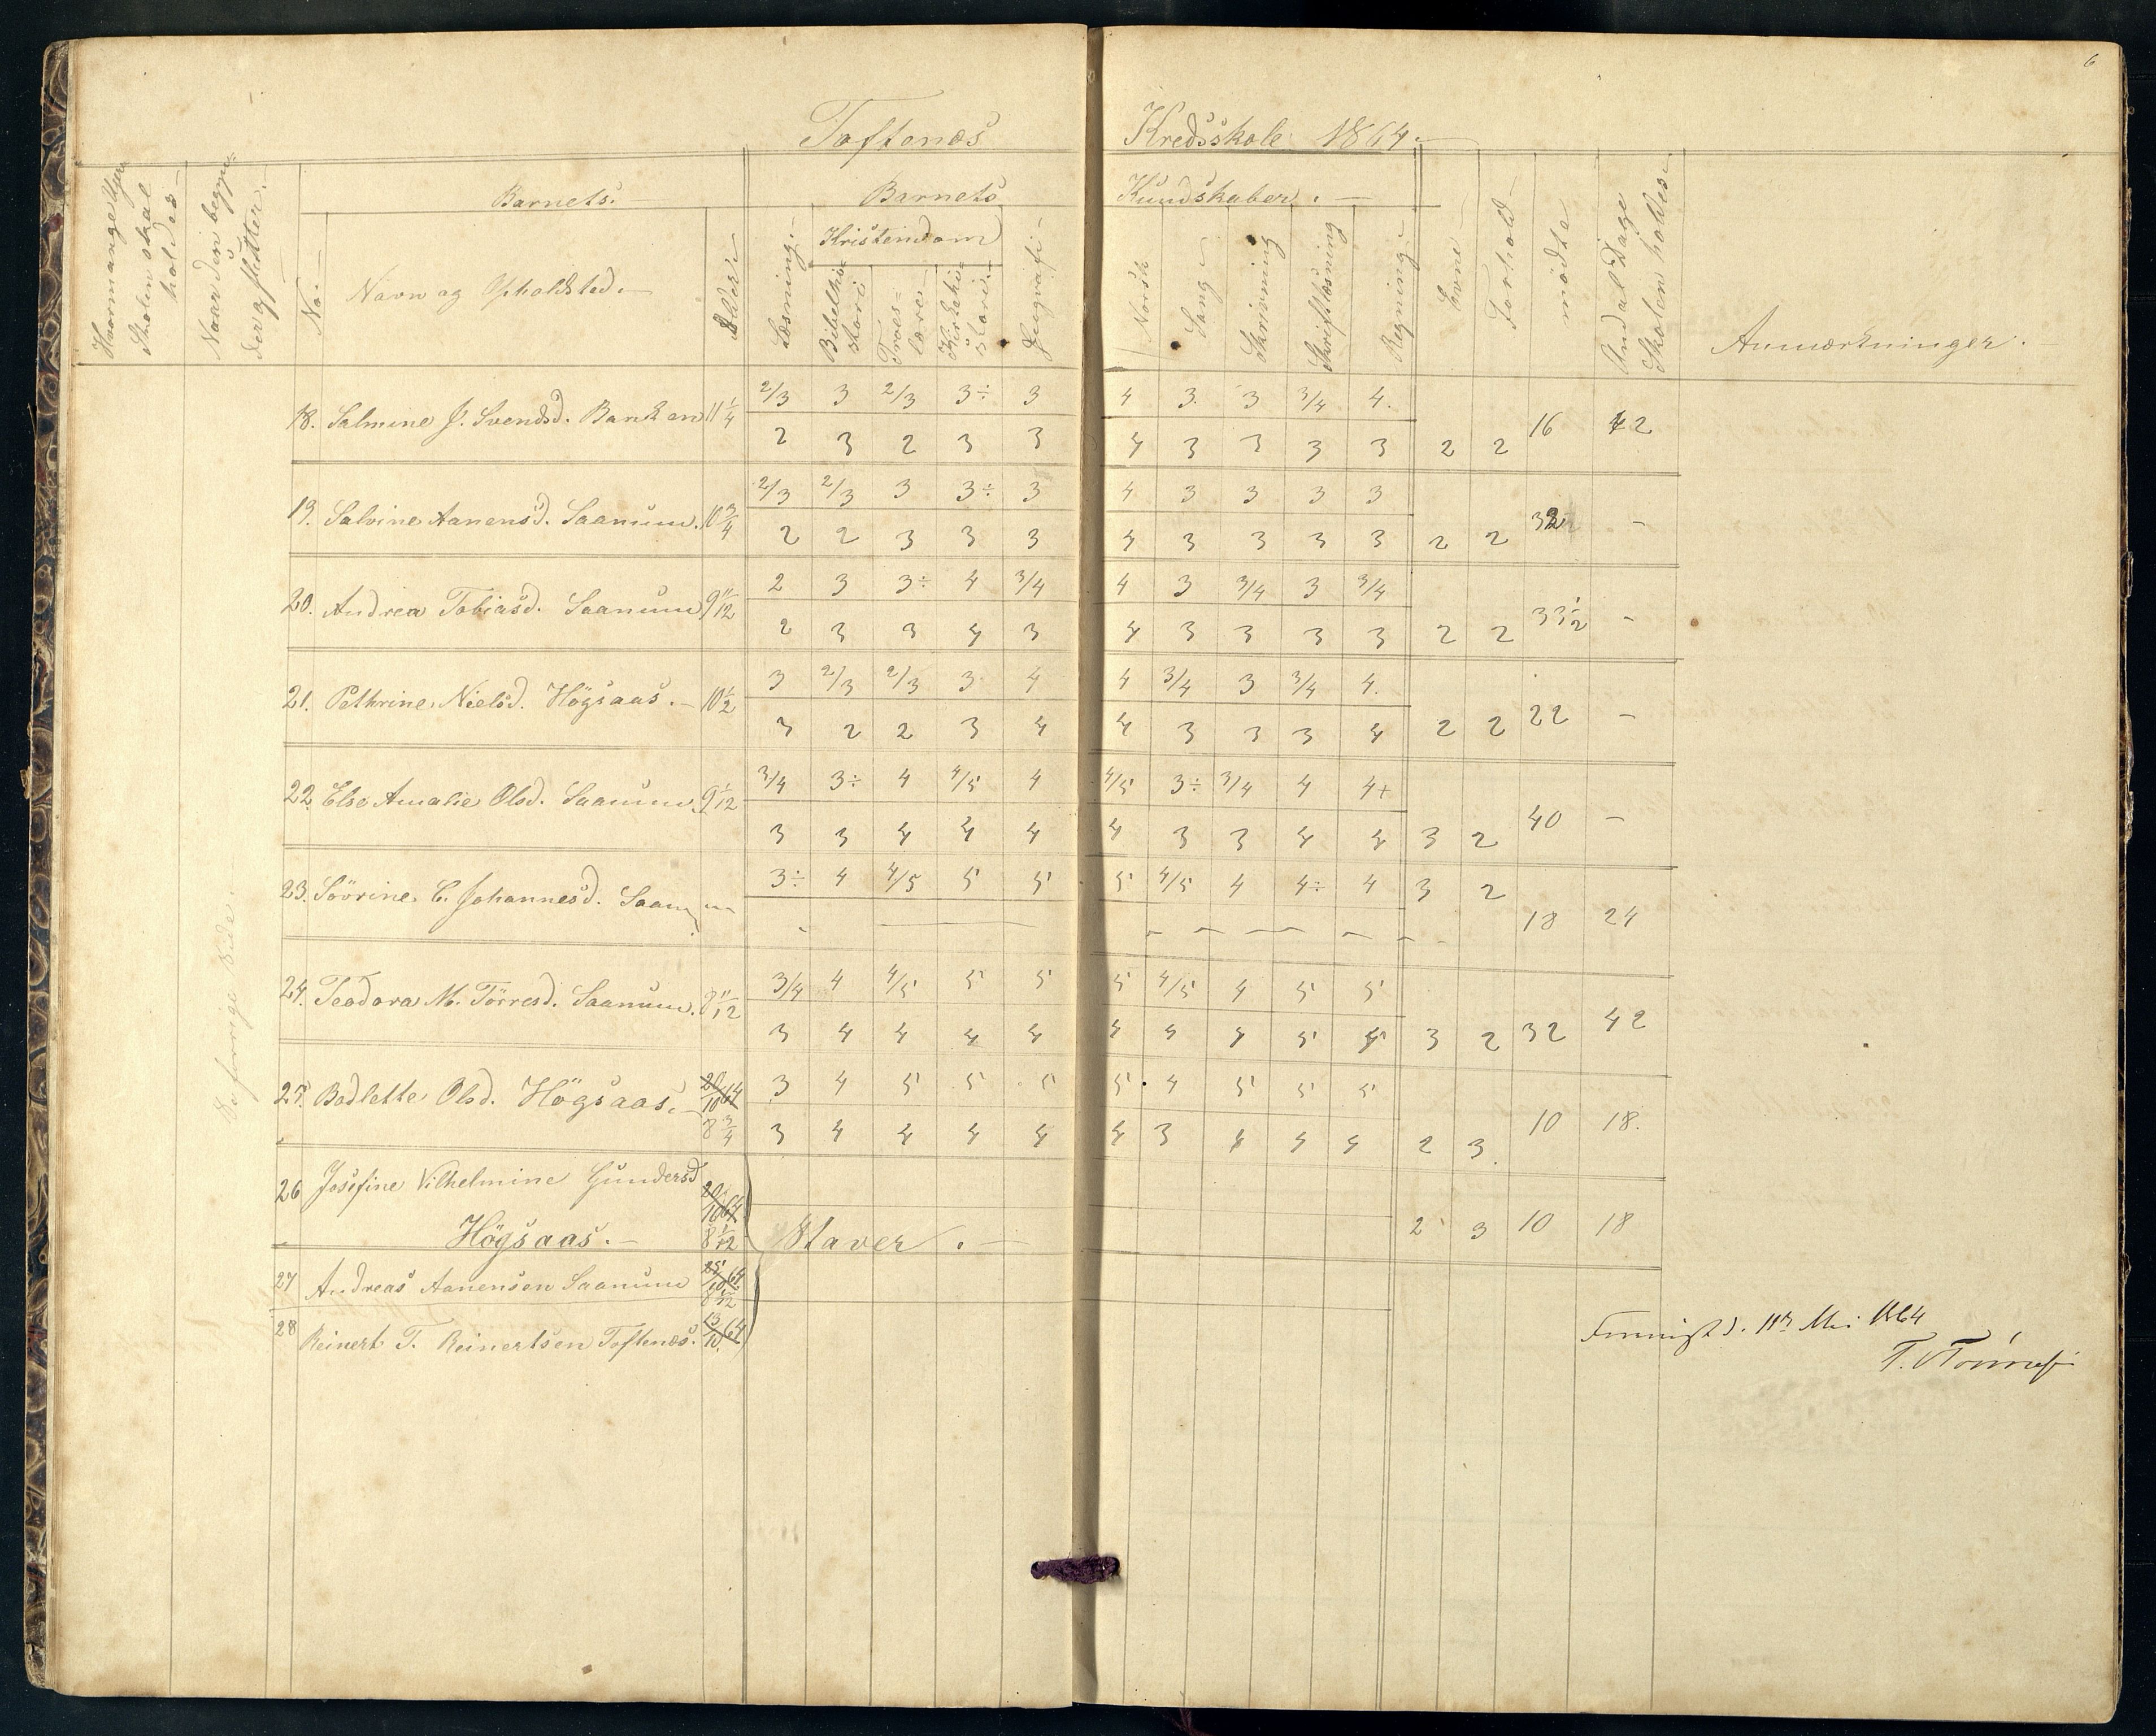 6
Toftenæs Kredsskole 1864.
Hvormange Uger Skolen skal holdes
Naar den begynder og slutter.
Barnets.
Barnets Kundskaber.
No.
Navn og Opholdsted.
Alder
Læsning.
Kristendom
Bibelhistorie
Troeslære
Kirkehistorie
Geografi
Norsk
Sang
Skrivning
Skriftlæsning
Regning
Evne
Forhold
mödte
Andal Dage Skolen holdes
Anmærkninger.
18. Salmine J. Svendsd. Banken 11 1/4 2/3 3 2/3 3÷ 3 4 3 3 3/4 4. 16 42
2 3 2 3 3 4 3 3 3 3 2 2
19. Salvine Aanensd. Saanum. 10 3/4 2/3 2/3 3 3÷ 3 4 3 3 3 3 32 -
2 2 3 3 3 4 3 3 3 3 2 2
20. Andrea Tobiasd. Saanum 9 11/12 2 3 3÷ 4 3/4 4 3 3/4 3 3/4 33 1/2 -
2 3 3 4 3 4 3 3 3 3 2 2
21. Pethrine Nielsd. Högsaas. - 10 1/2 3 2/3 2/3 3 4 4 3/4 3 3/4 4. 22 -
3 2 2 3 4 4 3 3 3 4 2 2
22. Else Amalie Olsd. Saanum. 9 1/12 3/4 3÷ 4 4/5 4 4/5 3÷ 3/4 4 4+ 40 -
3 3 4 4 4 4 3 3 4 4 3 2
23. Sövrine C. Johannesd. Saanum 3÷ 4 4/5 5 5 5 4/5 4 4÷ 4 3 2 18 24
24. Teodora M. Törresd. Saanum. 8 11/12 3/4 4 4/5 5 5 5 4/5 4 5 5 42
3 4 4 4 4 4 4 4 5 5 3 2 32
25. Bodlette Olsd. Högsaas. 20/10 64 3 4 5 5 5 5 4 5 5 5 10 18.
8 3/4 3 4 4 4 4 4 3 4 4 4 2 3.
26 Josefine Vilhelmine Gundersd 20/10 64
Högsaas. - 8 1/12 Staver. - 2 3 10 18
27 Andreas Aanensen Saanum 25/10 64
28 Reinert T. Reinertsen Toftenæs. 13/10 64
Se forrige Side.
d. 11te Mai 1864